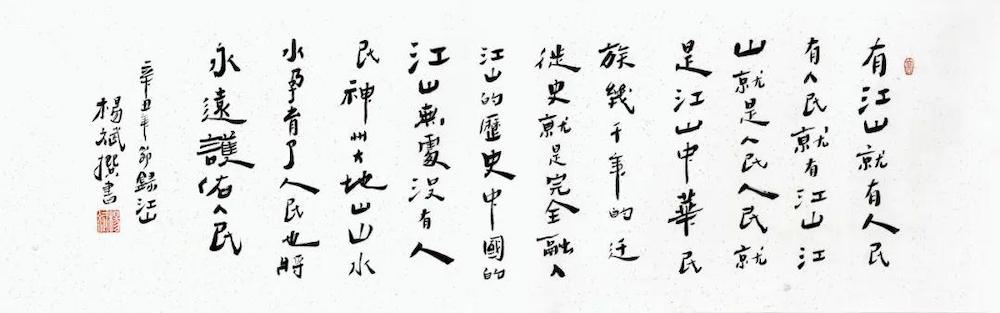 有江山就有人民
有人民就有江山江
山就是人民人民就
是江山中華民
族幾千年的迁
徙史就是完全融入
江山的歷史中國的
江山無處没有人
民神州大地山山水
水孕育了人民也将
永遠護佑人民
辛丑年節錄江山
楊斌撰書